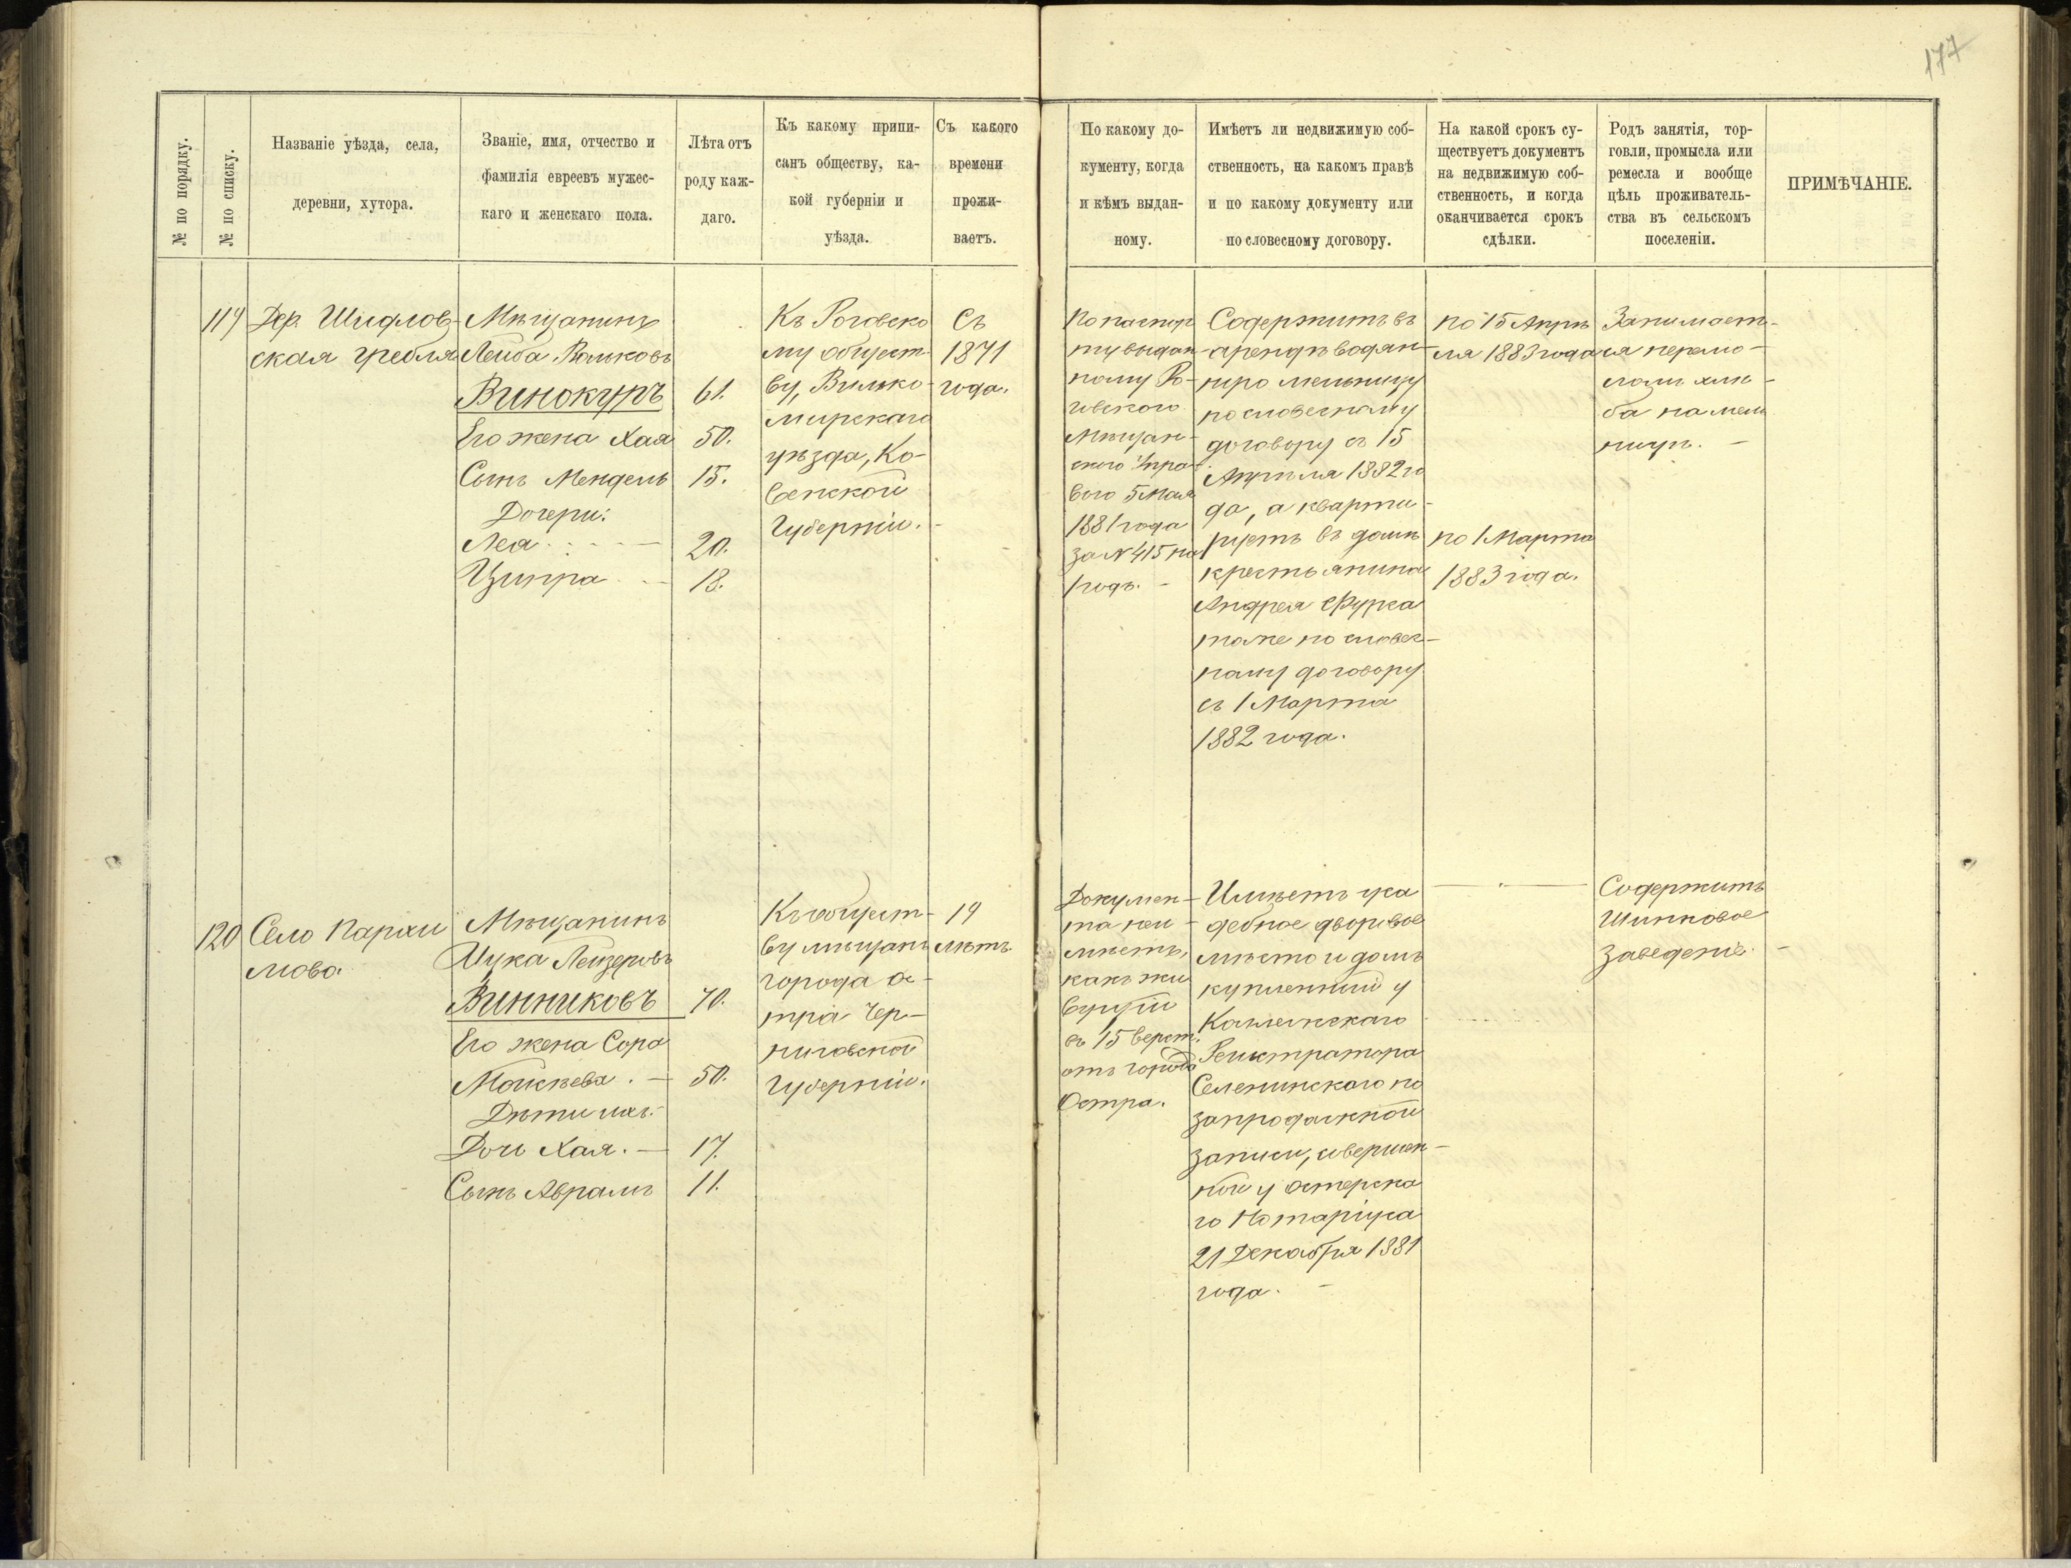 177
№ по порядку.
№ по списку.
Названіе уѣзда, села,
деревни, хутора.
Званіе, имя, отчество и
фамилія евреевъ мужес-
каго и женскаго пола.
Лѣта отъ
роду каж-
даго.
Къ какому припи-
санъ обществу, ка-
кой губерніи и
уѣзда.
Съ какого
времени
прожи-
ваетъ.
По какому до-
кументу, когда
и кѣмъ выдан-
ному.
Имѣетъ ли недвижимую соб-
ственность, на какомъ правѣ
и по какому документу или
по словесному договору.
На какой срокъ су-
ществуетъ документъ
на недвижимую соб-
ственность, и когда
оканчивается срокъ
сдѣлки.
Родъ занятія, тор-
говли, промысла или
ремесла и вообще
цѣль проживатель-
ства въ сельскомъ
поселеніи.
ПРИМѢЧАНІЕ.
119
Дер. Шидлов-
ская гребля
Мѣщанинъ
Лейба Вольковъ
Винокуръ 61.
Его жена Хая 50.
Сынъ Мендель 15.
Дочери:
Лея 20.
Ципра 18.
Къ Роговско
му общест-
ву, Вилько-
мирскаго
уѣзда, Ко-
венской
Губерніи.
Съ
1871
года.
По паспор
ту выдан
ному Ро-
говскою
Мѣщан-
скою Упра
вою 5 Мая
1881 года
за № 415 на
1 годъ.
Содержитъ въ
арендѣ водян-
ную мельницу
по словесному
договору съ 15
Апреля 1882 го
да, а кварти-
руетъ въ домѣ
крестьянина
Андрея Фурса
тоже по словес-
ному договору
съ 1 Марта
1882 года.
по 15 Апрѣ
ля 1883 года
по 1 Марта
1883 года.
Занимает-
ся перемо-
ломъ хлѣ-
ба на мель
ницѣ.
120
Село Пархи
мово
Мѣщанинъ
Ицка Лейзеровъ
Винниковъ 70.
Его жена Сора
Мойсѣева 50.
Дѣти ихъ:
Дочь Хая. 17.
Сынъ Аврамъ 11.
Къ общест-
ву мѣщанъ
города Ос-
тра Чер-
ниговской
Губерніи.
19
лѣтъ.
Докумен-
та неи-
мѣетъ,
какъ жи
вущій
въ 15 верст.
отъ города
Остра.
Имѣетъ уса
дебное дворовое
мѣсто и домъ
купленный у
Коллежскаго
Регистратора
Селенинскаго по
запродажной
записи, совершен-
ной у Остерска
го Нотаріуса
21 Декабря 1881
года.
Содержитъ
Шинковое
Заведеніе.